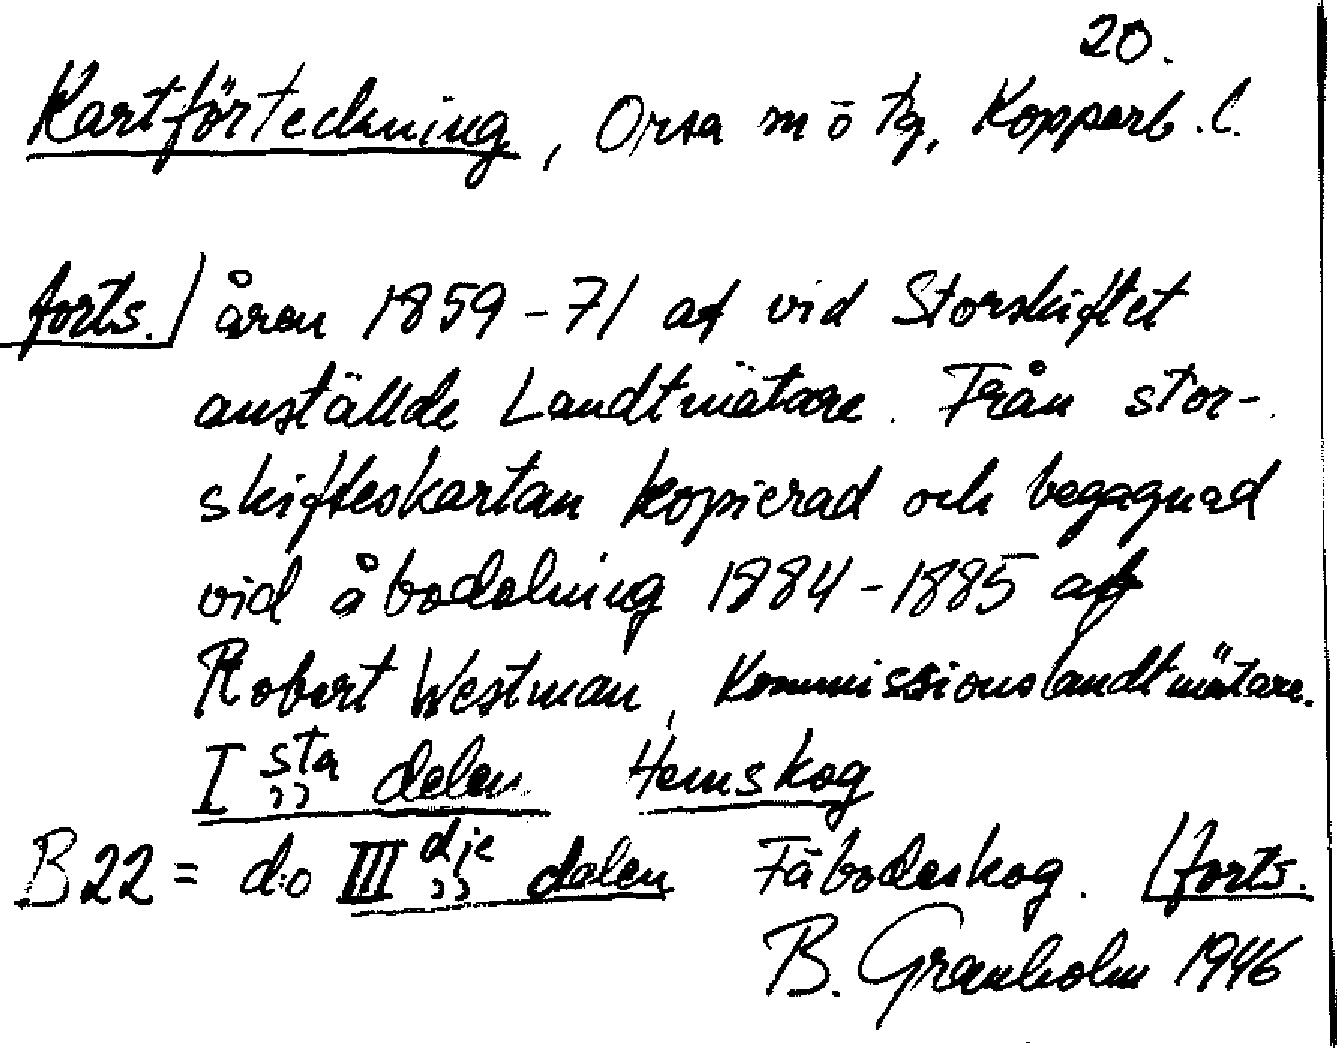 20.
Kartförteckning, Orsa m ö tg, Kopparb. l.
forts. / åren 1859-71 af vid Storskiftet
anställde Landtmätare. Från stor-
skifteskartan kopierad och begagnad
vid åbodelning 1884-1885 af
Robert Westman, Kommissionslandtmätare.
I sta delen Hemskog
B22 = d:o III dje delen Fäbodeskog. /forts.
B. Granholm 1946